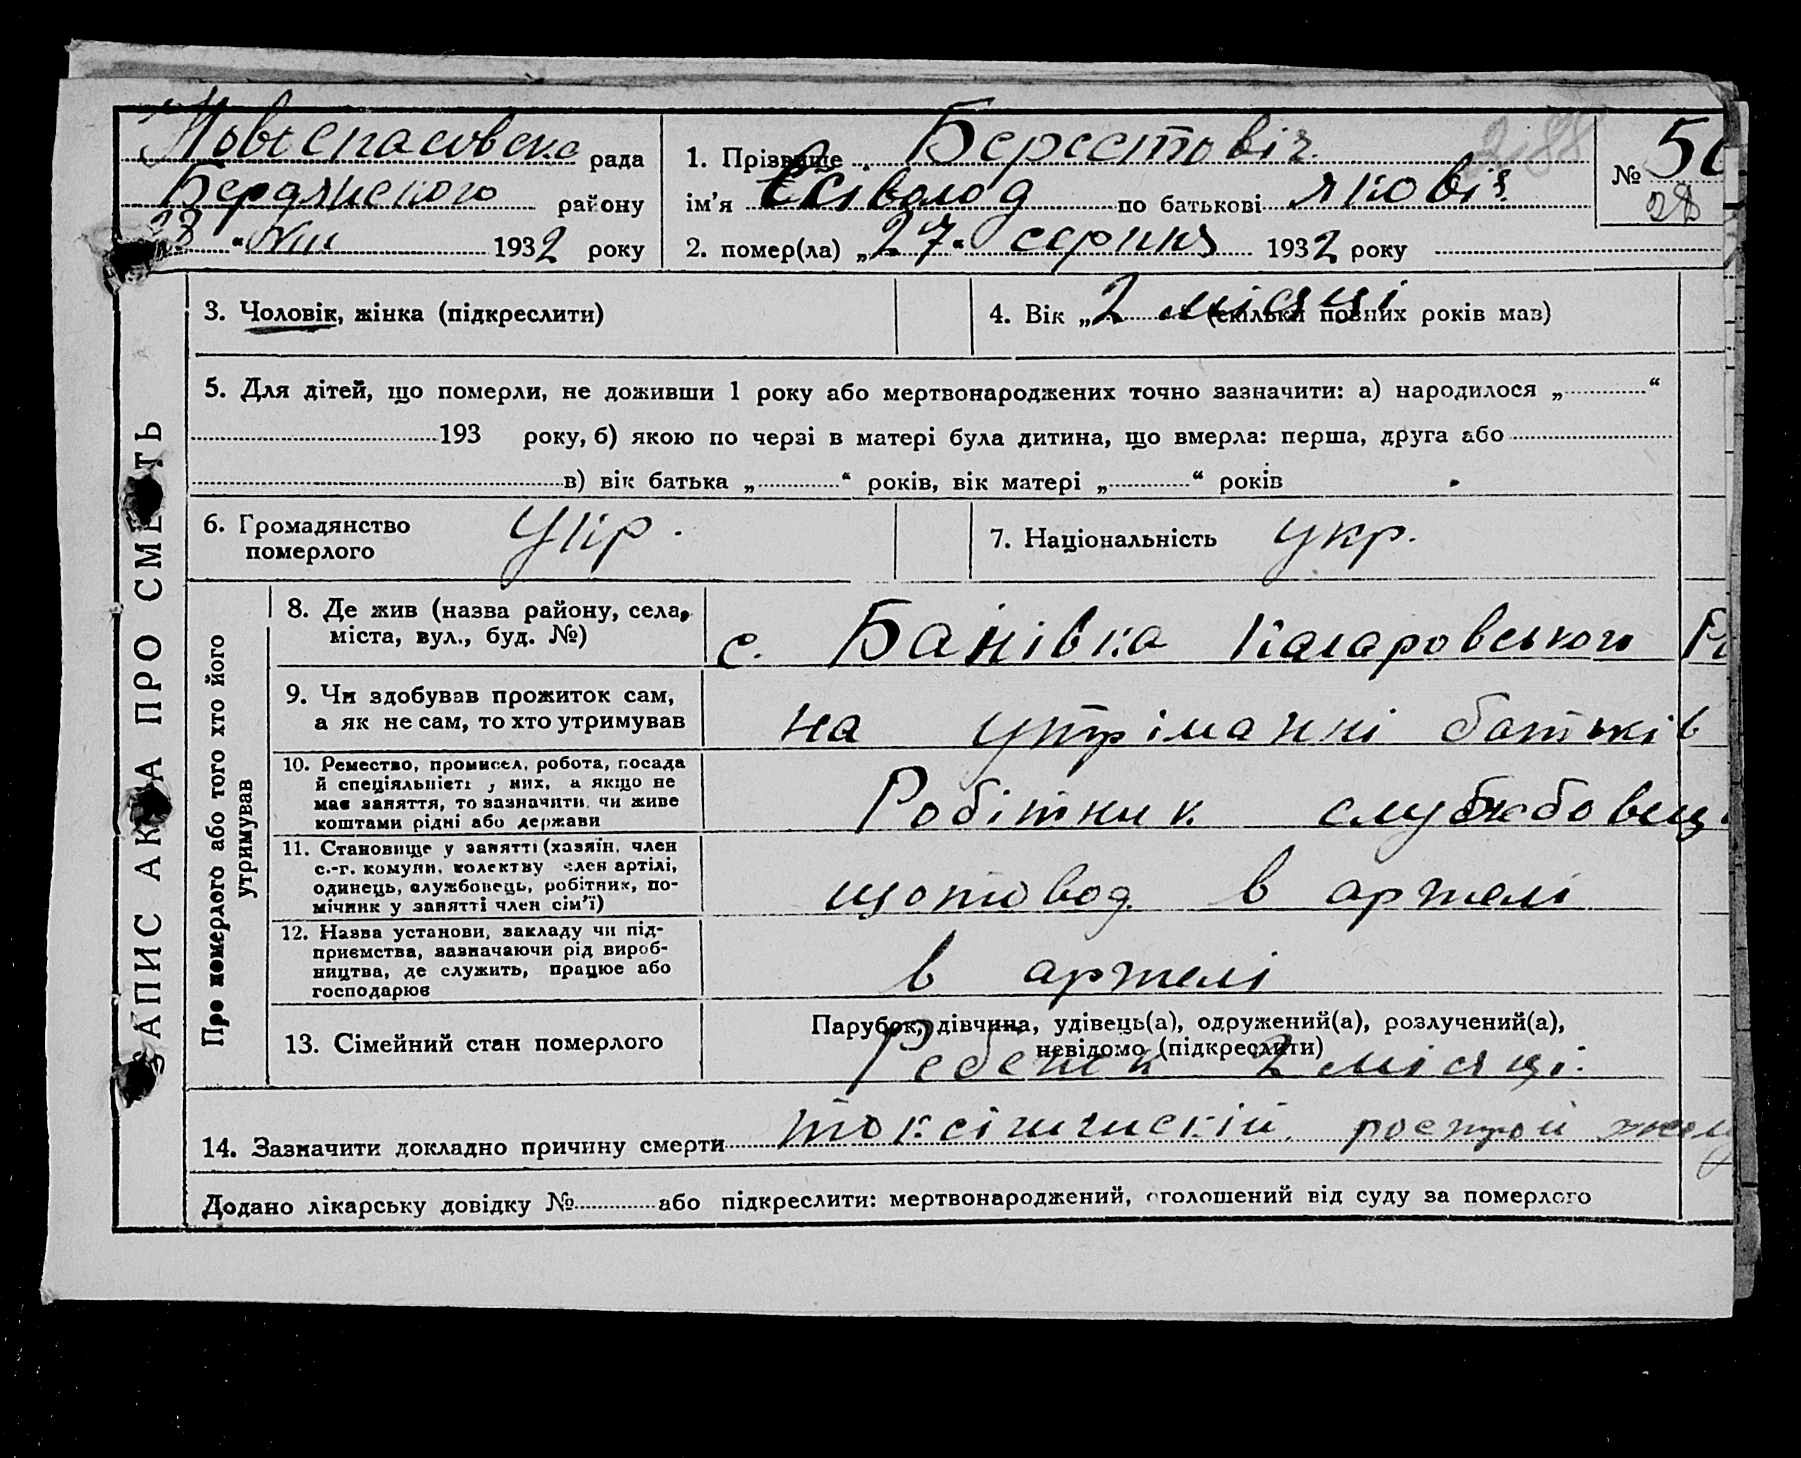 Новоспасовска рада
Бердянського району
28 " VIII 1932 року
1. Прізвище Берестовіч
ім’я Всівалод по батькові яковіч
2. помер(ла) „27" серпня 1932 року
288
№ 50
28
ЗАПИС АКТА ПРО СМЕРТЬ
3. Чоловік, жінка (підкреслити)
4. Вік „2 місяці (скільки повних років мав)
5. Для дітей, що померли, не доживши 1 року або мертвонароджених точно зазначити: а) народилося „ “
193 року, б) якою по черзі в матері була дитина, що вмерла: перша, друга або
в) вік батька „ “ років, вік матері „ “ років
6. Громадянство померлого Укр.
7. Національність укр.
Про померлого або того хто його утримував
8. Де жив (назва району, села,
міста, вул., буд. №)
с. Банівка Кагаровського
9. Чи здобував прожиток сам,
а як не сам, то хто утримував
на утріманні батьків
10. Ремество, промисел, робота, посада
й спеціяльність у них, а якщо не
має заняття, то зазначити, чи живе
коштами рідні або держави
Робітник службовец
11. Становище у занятті (хазяїн, член
с.-г. комуни, колективу член артілі,
одинець, службовець, робітник, по-
мічник у занятті член сім’ї)
щотовод в артелі
12. Назва установи, закладу чи під-
приємства, зазначаючи рід вироб-
ництва, де служить, працює або
господарює
в артелі
13. Сімейний стан померлого
Парубок, дівчина, удівець(а), одружений(а), розлучений(а),
невідомо (підкреслити)
Ребенок 2 місяці.
14. Зазначити докладно причину смерти токсічическій рострой
Додано лікарську довідку № або підкреслити: мертвонароджений, оголошений від суду за померлого